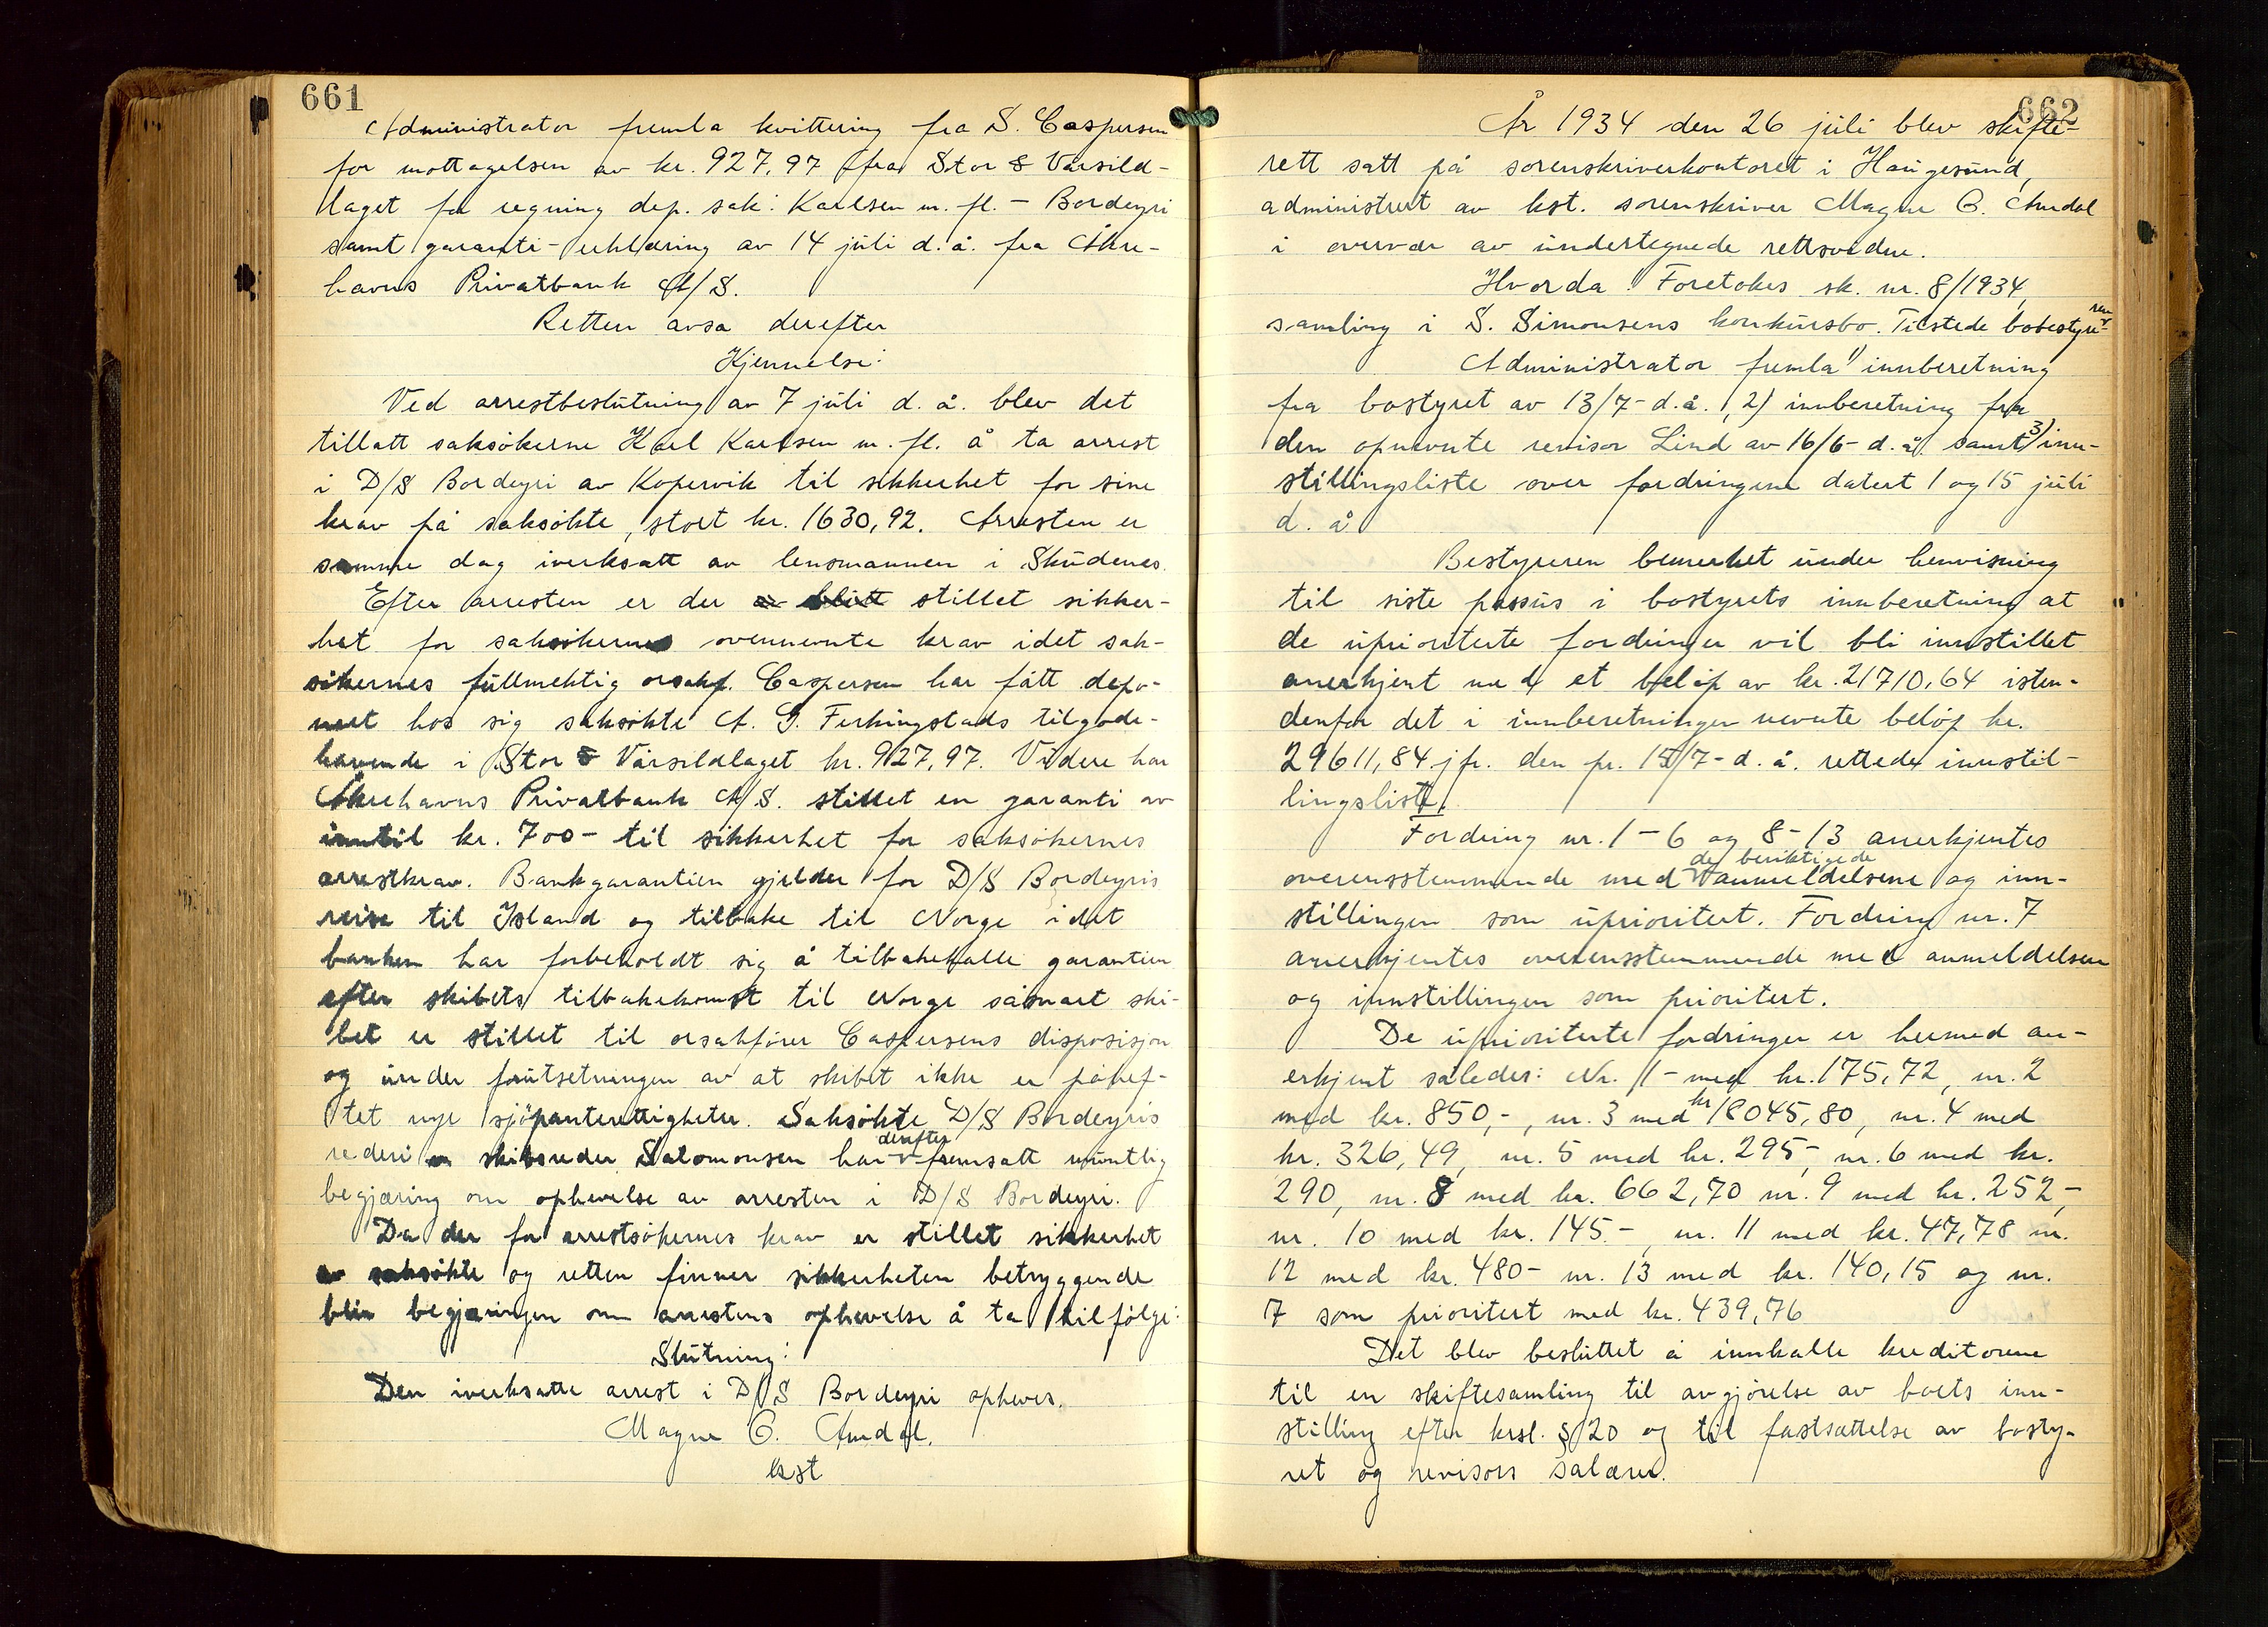 661
Administrator fremla kvittering fra S. Caspersen
for mottagelsen av kr. 927,97 fra Stor & Vårsild-
laget for regning dep. sak: Karlsen m. fl. - Bordeyri
samt garanti-erklæring av 14 juli d. å. fra Åkre-
havns Privatbank A/S.
Retten avsa derefter
Kjennelse:
Ved arrestbeslutning av 7 juli d. å. blev det
tillatt saksökerne Karl Karlsen m. fl. å ta arrest
i D/S Bordeyri av Kopervik til sikkerhet for sine
krav på saksökte, stort kr. 1630,92. Arresten er
samme dag iverksatt av lensmannen i Skudenes.
Efter arresten er der av blitt stillet sikker-
het for saksökernes ovennevnte krav idet sak-
sökernes fullmektig orsakf. Caspersen har fått depo-
nert hos sig saksökte A. G. Ferkingstads tilgode-
havende i Stor & Vårsildlaget kr. 927,97. Videre har
Åkrehavns Privatbank A/S. stillet en garanti av
inntil kr. 700- til sikkerhet for saksökernes
arrestkrav. Bankgarantien gjelder for D/S Bordeyris
reise til Island og tilbake til Norge idet
banken har forbeholdt sig å tilbakekalle garantien
efter skibets tilbakekomst til Norge såsnart ski-
bet er stillet til orsakfører Caspersens disposisjon
og under forutsetningen av at skibet ikke er påhef-
tet nye sjöpanterettigheter. Saksökte D/S Bordeyris
rederi skibsreder Salomonsen har derefter fremsatt muntlig
begjæring om ophevelse av arresten i D/S Bordeyri.
Da der for arrestsökernes krav er stillet sikkerhet
av saksökte og retten finner sikkerheten betryggende
blir begjæringen om arrestens ophevelse å ta tilfölge:
Slutning:
Den iverksatte arrest i D/S Bordeyri opheves.
Magne C. Amdal.
kst
662
År 1934 den 26 juli blev skifte-
rett satt på sorenskriverkontoret i Haugesund,
administrert av kst. sorenskriver Magne C. Amdal
i overvær av undertegnede rettsvidne.
Hvorda: Foretokes sk. nr. 8/1934,
samling i S. Simonsens konkursbo. Tilstede bobestyre-
ren
Administrator fremla 1) innberetning
fra bostyret av 13/7- d. å., 2) innberetning fra
den opnevnte revisor Lind av 16/6- d. å. samt 3) inn-
stillingsliste over fordringene datert 1 og 15 juli
d. å.
Bestyreren bemerket under henvisning
til siste passus i bostyrets innberetning at
de uprioriterte fordringer vil bli innstillet
anerkjent med et belöp av kr. 21710,64 isten-
denfor det i innberetningen nevnte belöp kr.
29611,84 jfr. den pr. 15/7- d. å. rettede innstil-
lingsliste.
Fordring nr. 1-6 og 8-13 anerkjentes
overensstemmende med de beriktigede anmeldelsene og inn-
stillingen som uprioritert. Fordring nr. 7
anerkjentes overensstemmende med anmeldelsen
og innstillingen som prioritert.
De uprioriterte fordringer er hermed an-
erkjent således: Nr. 1- med kr. 175,72, nr. 2
med kr. 850,-, nr. 3 med kr 18045,80, nr. 4 med
kr. 326,49, nr. 5 med kr. 295-, nr. 6 med kr.
290, nr. 8 med kr. 662,70 nr. 9 med kr. 252,-
nr. 10 med kr. 145.-, nr. 11 med kr. 47,78 nr.
12 med kr. 480- nr. 13 med kr. 140,15 og nr.
7 som prioritert med kr. 439,76
Det blev besluttet å innkalle kreditorene
til en skiftesamling til avgjörelse av boets inn-
stilling efter krsl. § 20 og til fastsættelse av bosty-
ret og revisors salærer.